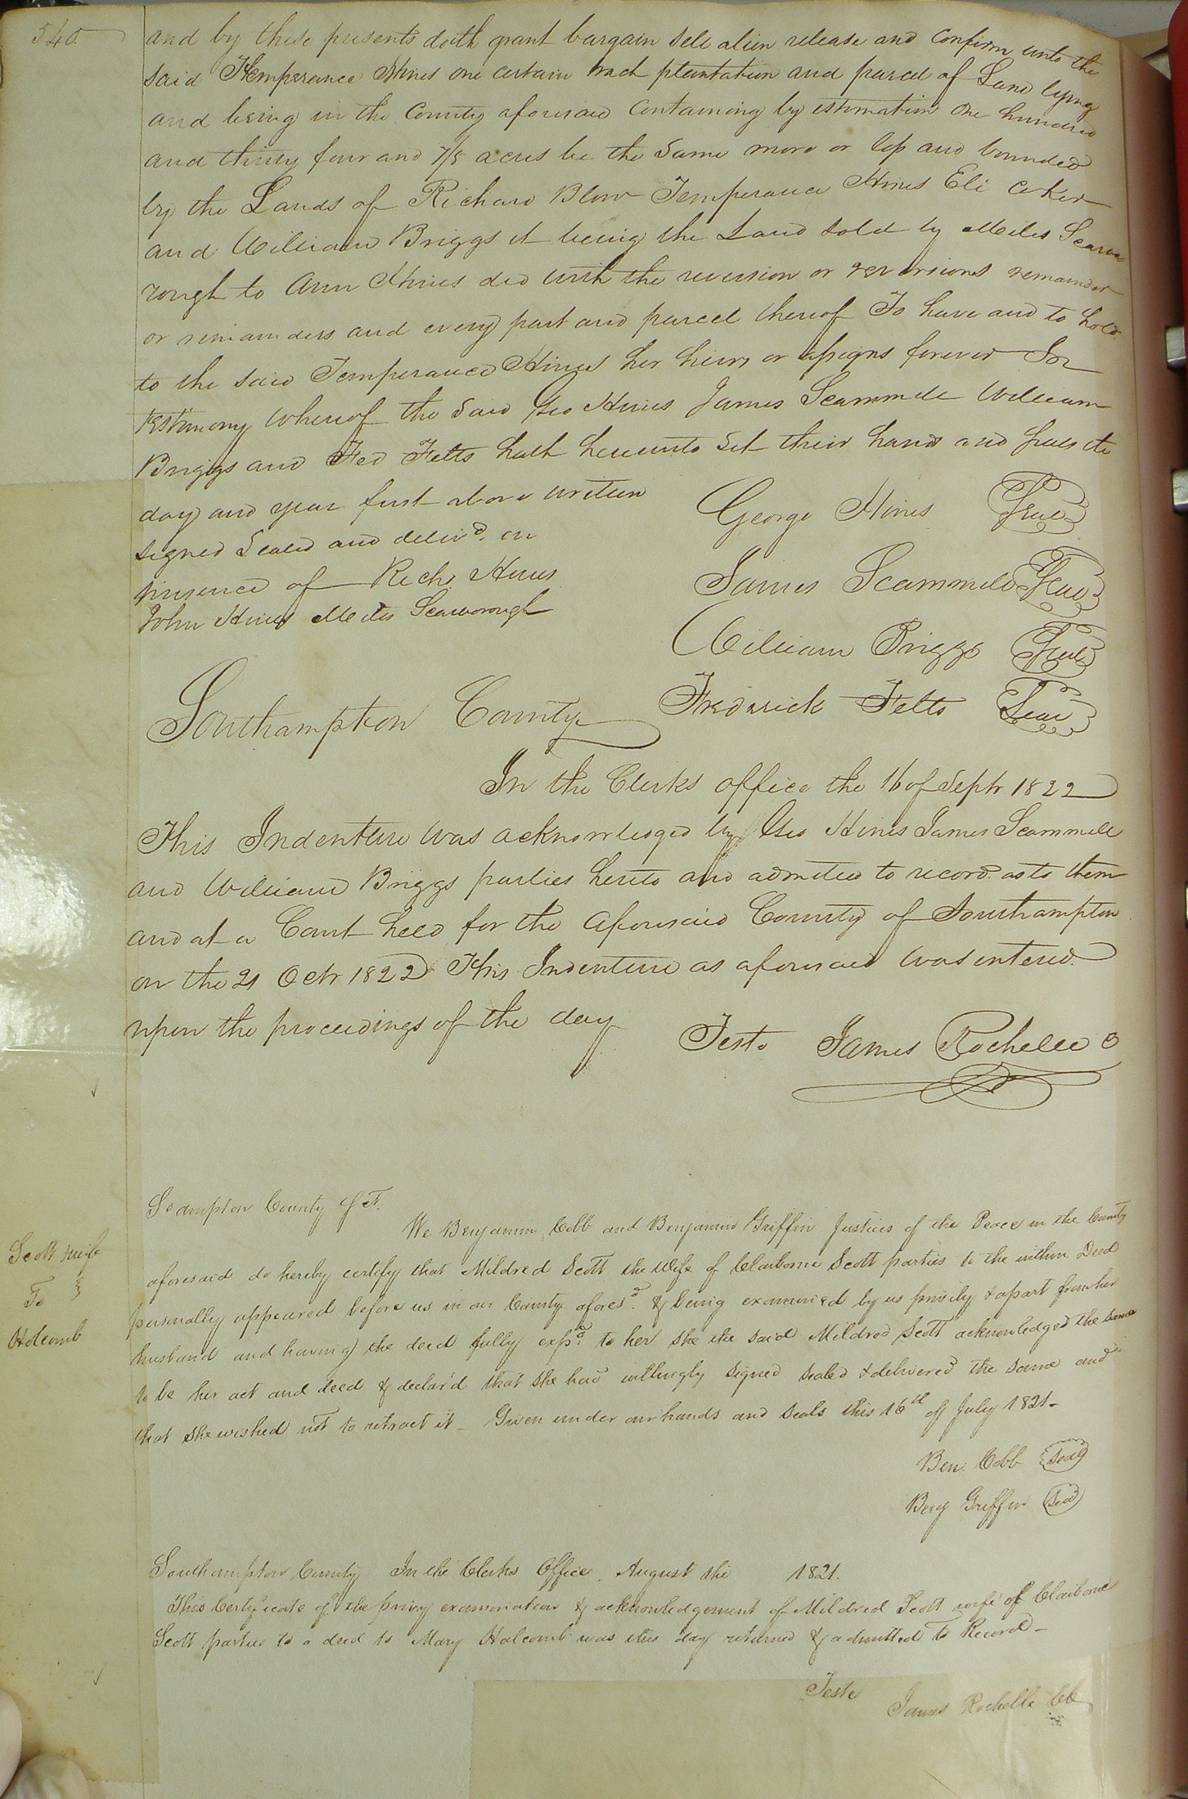 540
and by these presents doth grant bargain sell alien release and confirm unto the
said Temperance Hines one certain tract plantation and parcel of Land lying
and being in the County aforesaid containing by estimation One hundred
and thirty four and 7/8 acres be the same more or less and bounded
by the Lands of Richard Blow Temperance Hines Eli
and William Briggs it being the Land sold by Miles Scarbo
rough to Ann Hines decd with the reversion or reversions remainder
or remainders and every part and parcel thereof To have and to hold
to the said Temperance Hines her heirs or assigns forever In
testimony whereof the said Geo Hines James Scammell William
Briggs and Fed Felts hath hereunto set their hands and seals the
day and year first above written
signed Sealed and delivd. in
presence of Richd Hines
John Hines Miles Scarborough
George Hines Seal
James Scammell Seal
William Briggs Seal
Frederick Felts Seal
Southampton County
In the Clerks office the 16 of Septr 1822
This Indenture was acknowledged by Geo Hines James Scammell
and William Briggs parties hereto and admitted to record as to them
and at a Court held for the aforesaid County of Southampton
on the 21 Octr 1822 This Indenture as aforesaid was entered
upon the proceedings of the day
Teste James Rochelle C
Scott wife
To
Holcomb
So ampton County Sct.
We Benjamin Cobb and Benjamin Griffin Justices of the Peace in the County
aforesaid do hereby certify that Mildred Scott the wife of Claiborne Scott parties to the within Deed
personally appeared before us in our County aforesd. & being examined by us privily & apart from her
husband and having the deed fully expd. to her she the said Mildred Scott acknowledged the same
to be her act and deed & declar'd that she had willingly signed sealed & delivered the same and
that she wished not to retract it. Given under our hands and seals this 16th of July 1821.
Ben. Cobb Seal
Benj Griffin Seal
Southampton County In the Clerks Office August the 1821.
This Certificate of the privy examination & acknowledgement of Mildred Scott wife of Claiborne
Scott parties to a deed to Mary Holcomb was this day returned & admitted to Record
Teste
James Rochelle CC